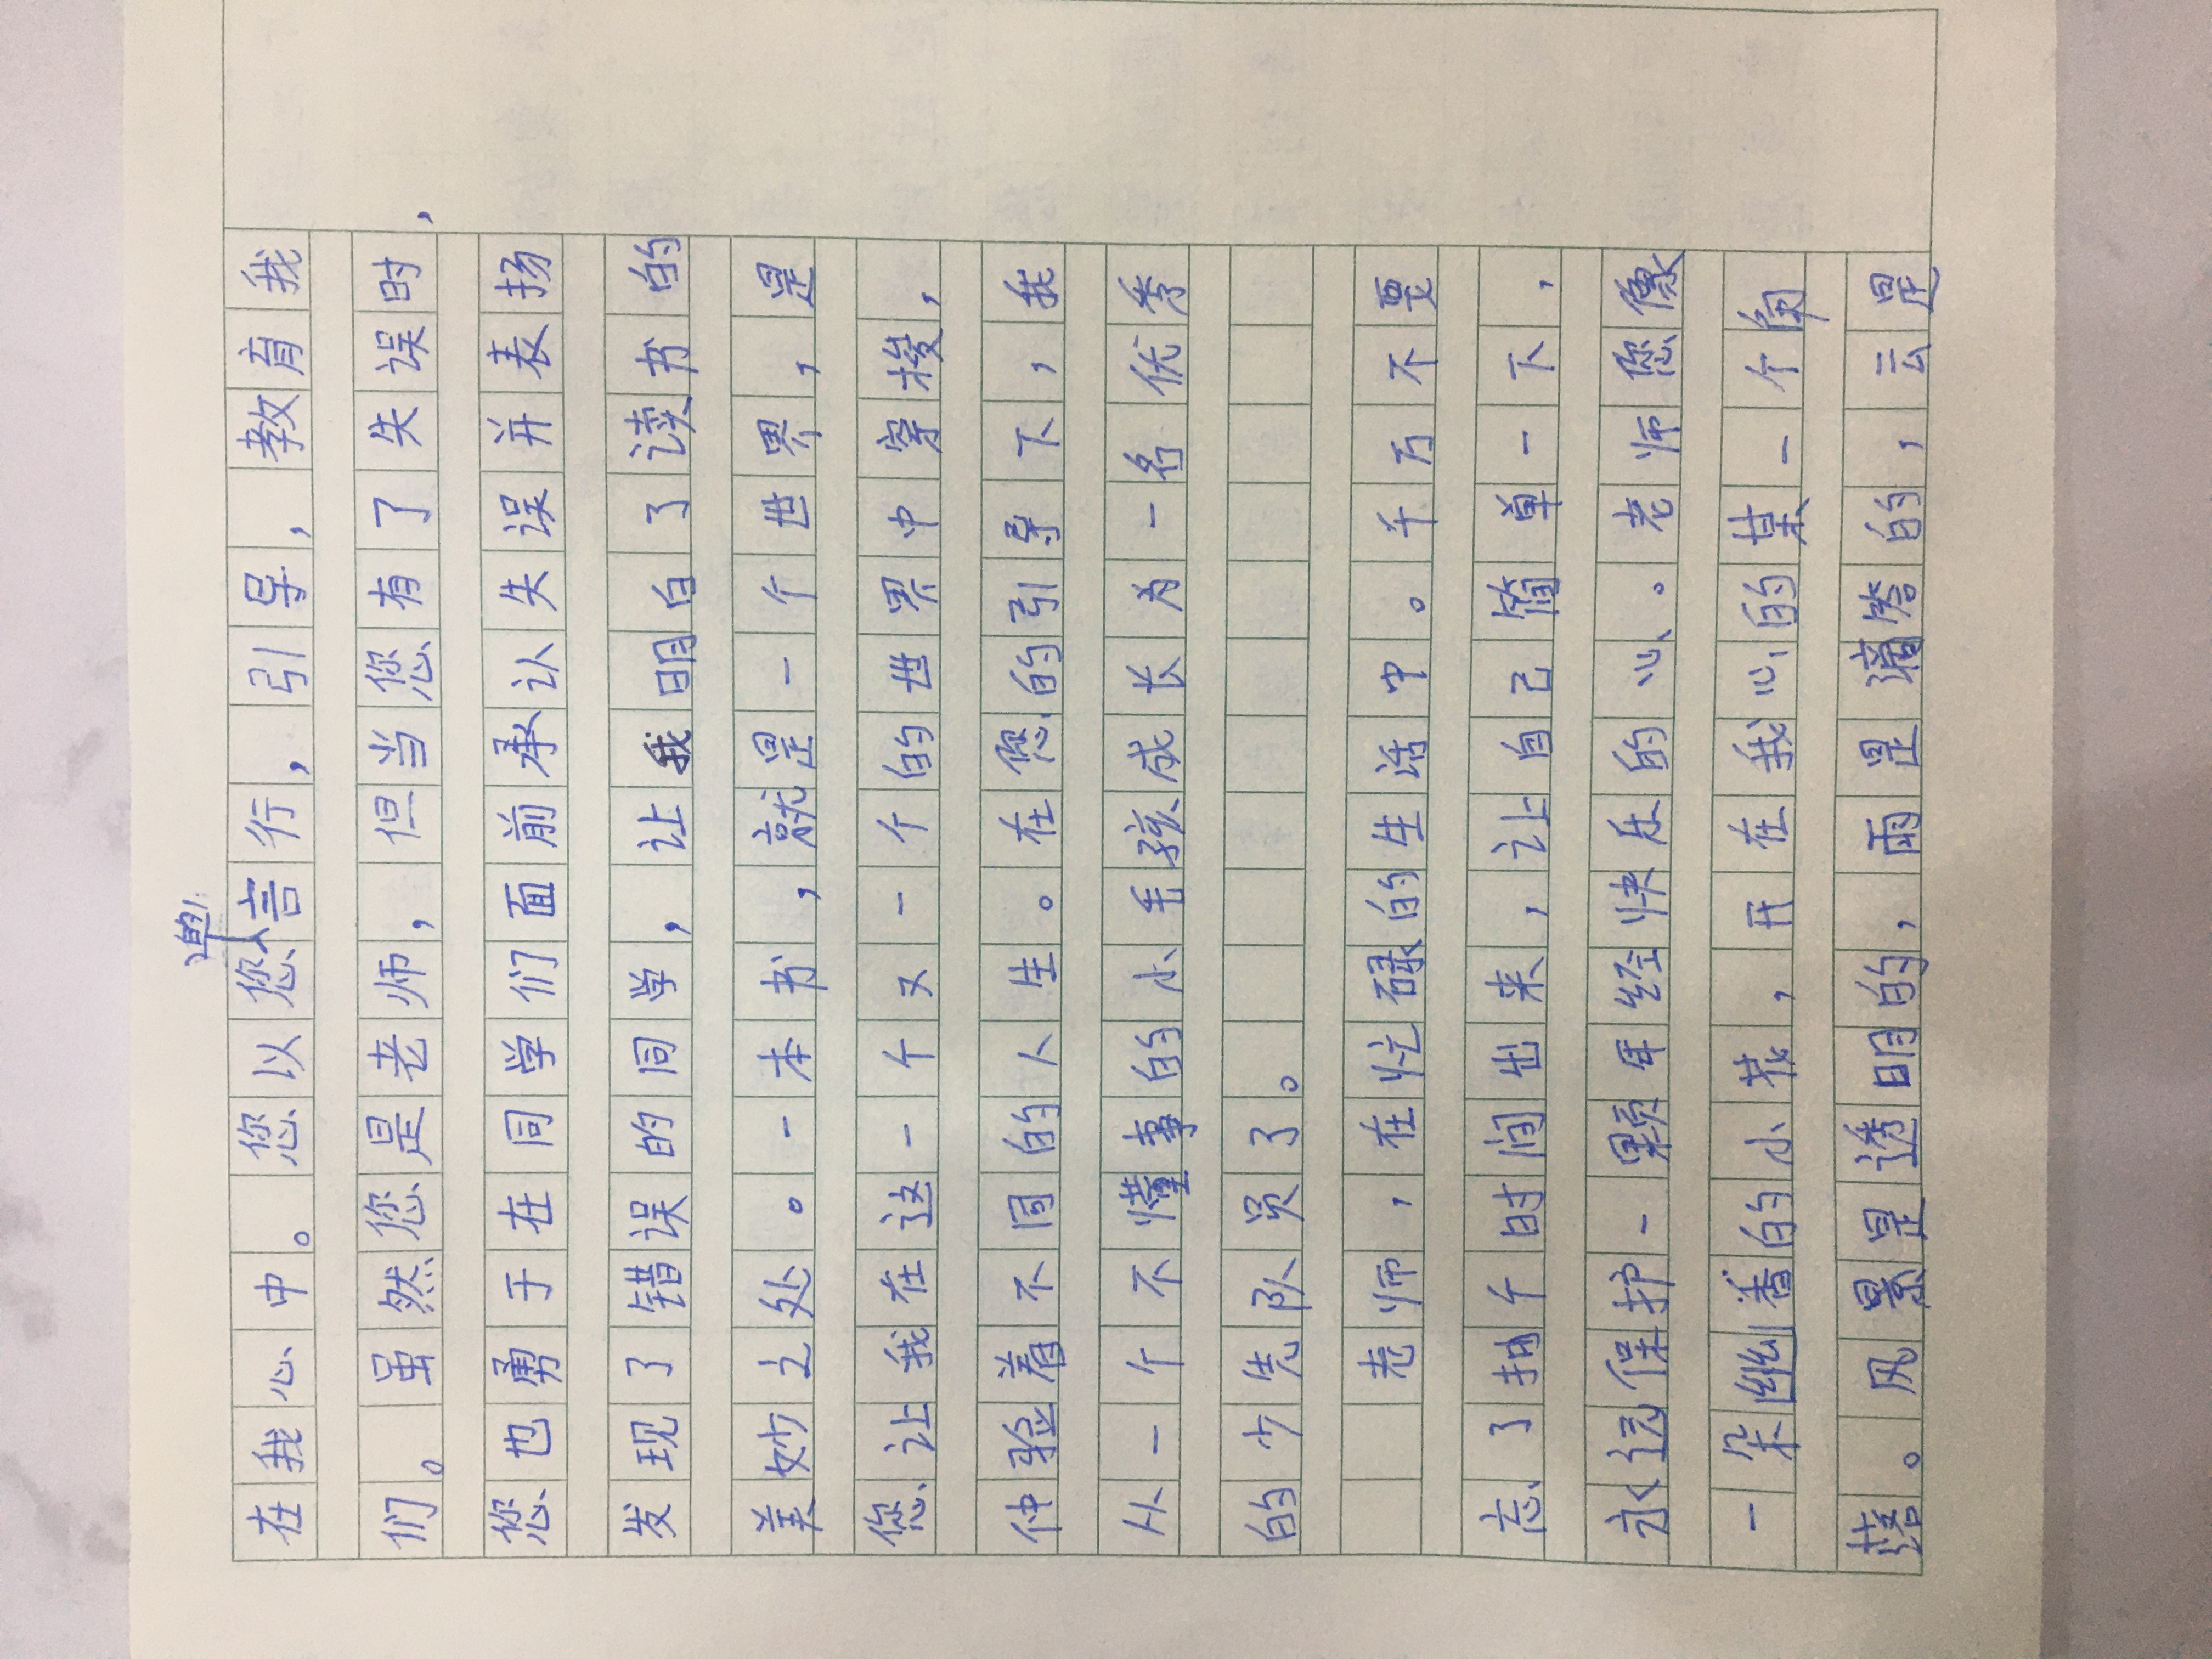 在我心中。您以您言行,引导,教育我
们。虽然您是老师,但当您有了失误时,
您也勇于在同学们面前承认失误并表扬
发现了错误的同学,让我明白了读书的
美妙之处。一本书,就是一个世界,是
您让我在这一个又一个的世界中穿梭,
体验着不同的人生。在您的引导下,我
从一个不懂事的小毛孩成长为一名优秀
的少先队员了。
老师,在忙碌的生活中。千万不要
忘了抽个时间出来,让自己简单一下,
永远保护一颗年经快乐的心。老师您像
一朵幽香的小花,开在我心的某一个角
落。风景是透明的,雨是滴答的,云是